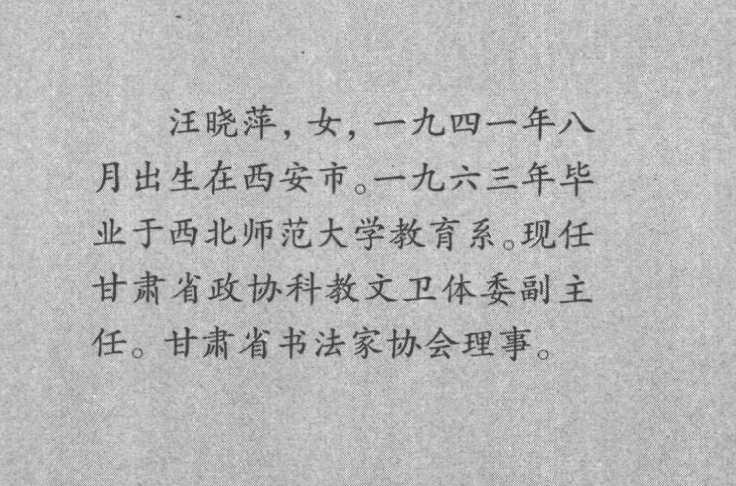 汪晓萍，女，一九四一年八
月出生在西安市。一九六三年毕
业于西北师范大学教育系。现任
甘肃省政协科教文卫体委副主
任。甘肃省书法家协会理事。